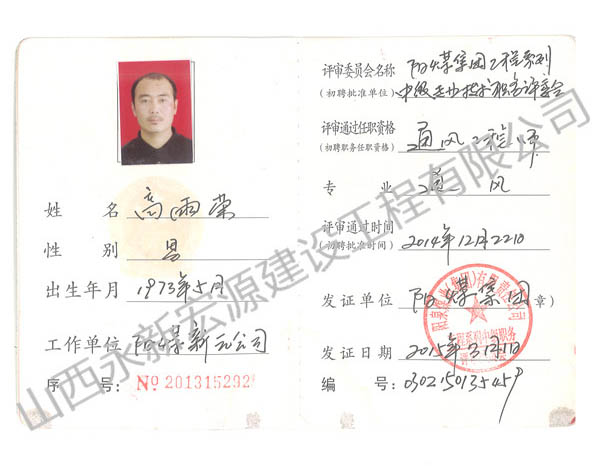 姓 名 高雨荣
性 别 男
出生年月 1973年5月
工作单位 阳煤新元公司
序 号: No 201315292
评审委员会名称 阳煤集团工程系列
(初聘批准单位) 中级专业技术职务评委会
评审通过任职资格 通风工程师
(初聘职务任职资格)
专 业 通 风
评审通过时间 2014年12月22日
(初聘批准时间)
发证单位 阳煤集团(章)
发证日期 2015年3月11日
编 号: 03021501354
山西永新宏源建设工程有限公司